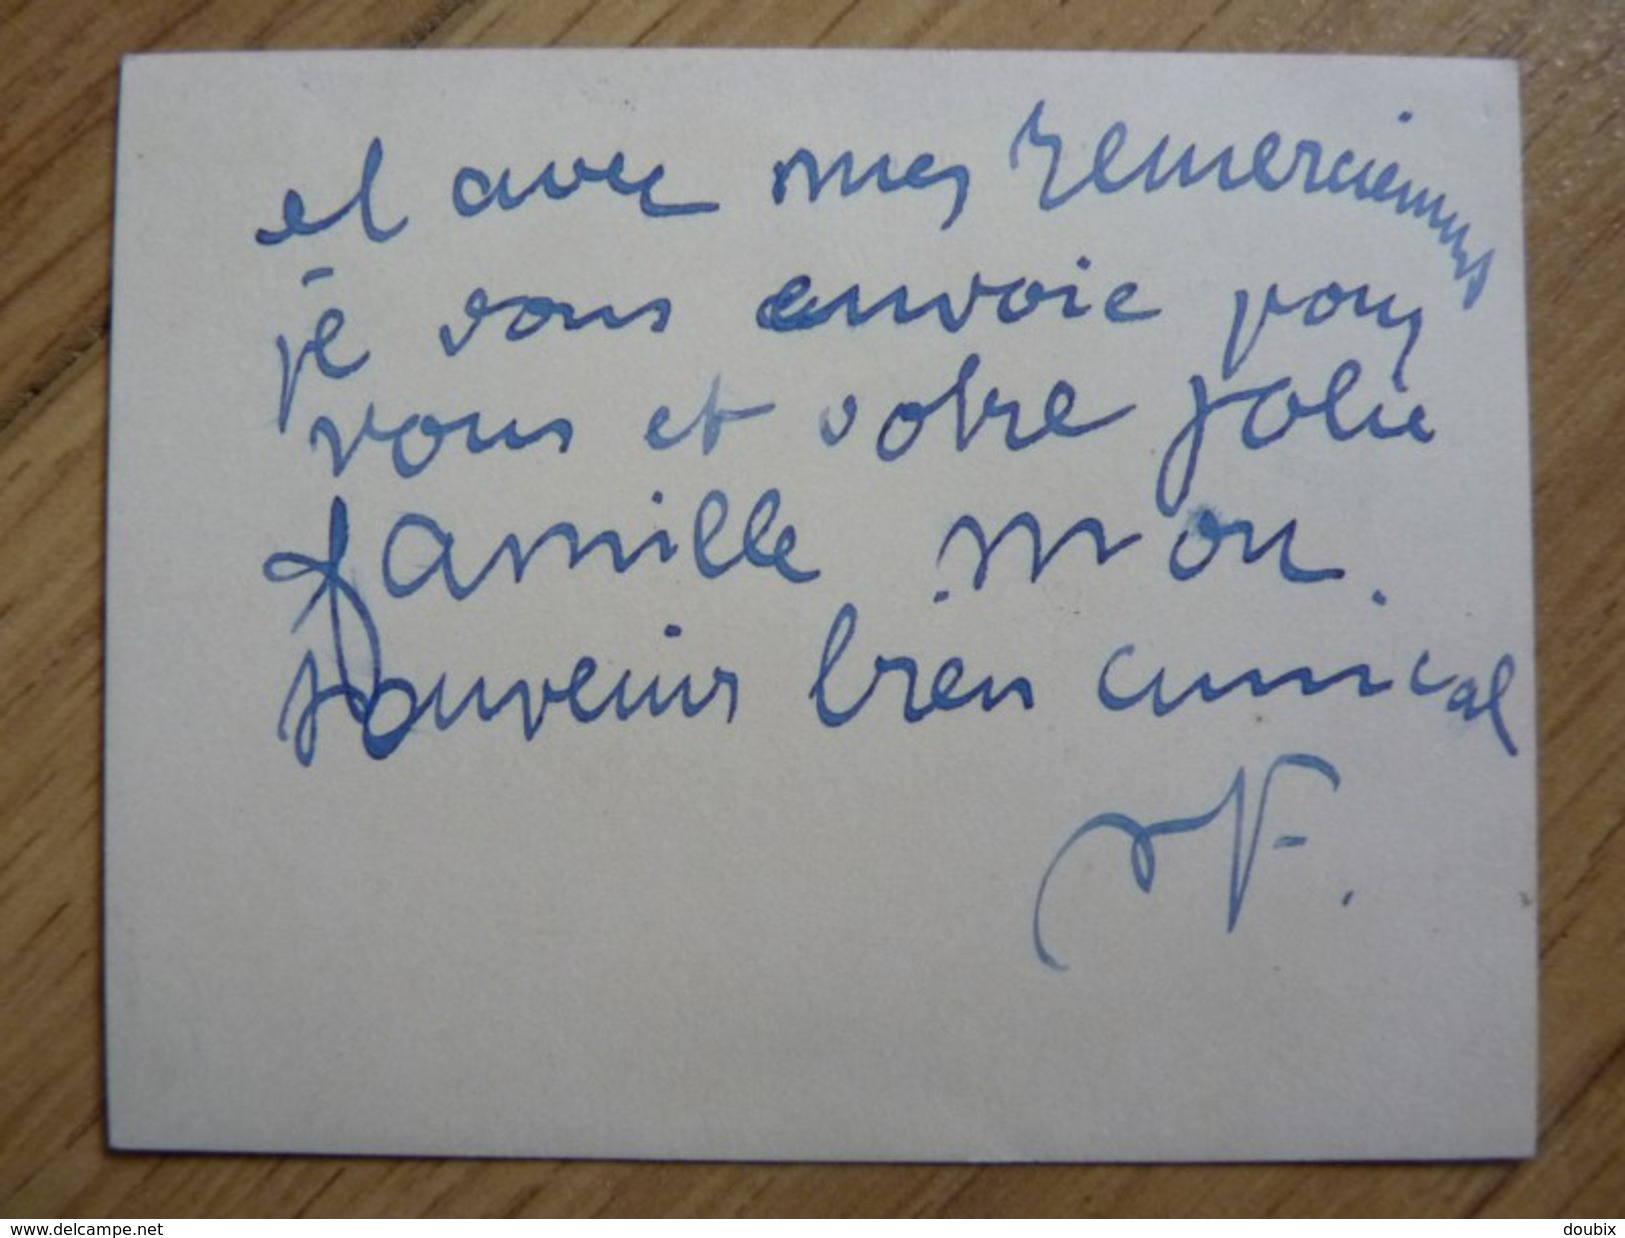 et avec mes remerciements
je vous envoie pour
vous et votre jolie
famille mon
souvenir bien amical
F.
www.delcampe.net
doubix